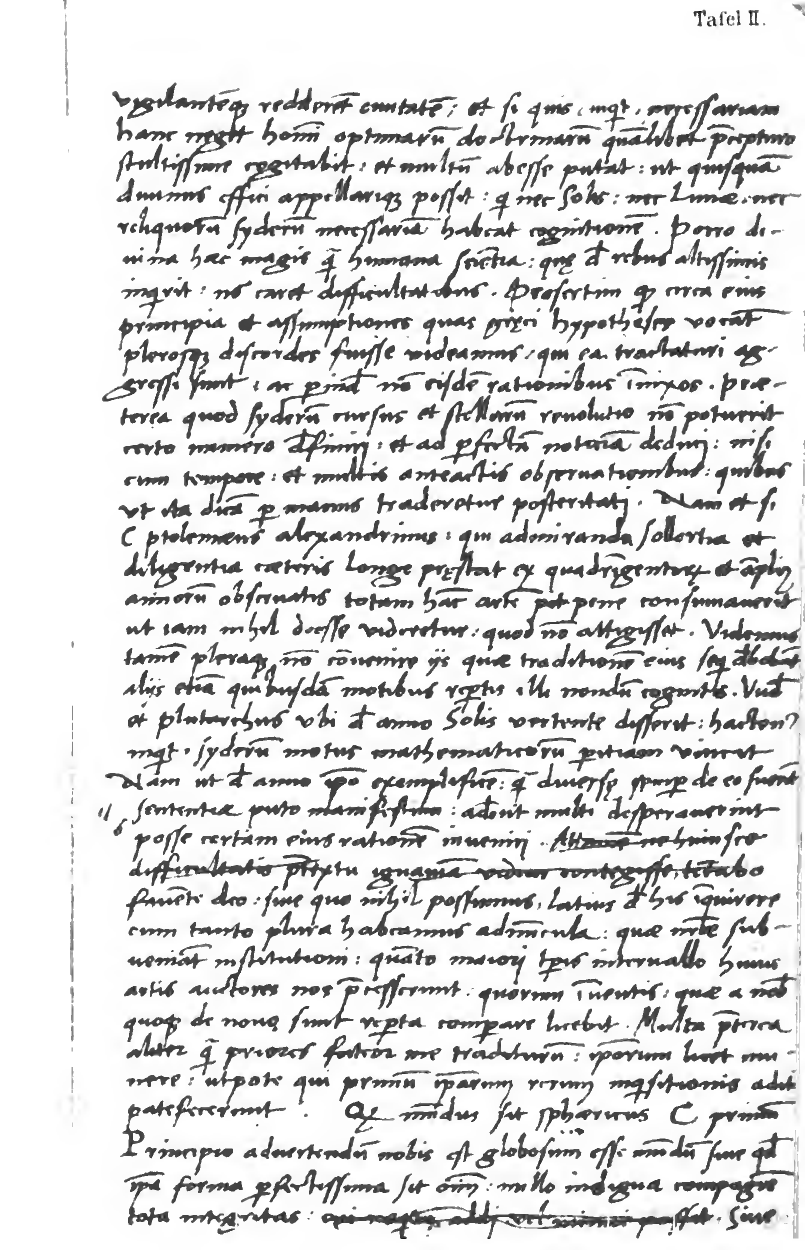 Tafel II.
vigilantēq3 redderēt ciuitatē; et si quis, inq̄t, necessariam
hanc negēt homī optimarū doctrinarū quālibet p̄cepturo
stultissime cogitabit: et multū abesse putat: ut quisquā
diuinus effici appellariq3 possit: q̄ nec Solis: nec Lunæ, nec
reliquorū syderū necessariā habeat cognitionē. Porro di-
uina hæc magis q̄ humana scientia: quę d̄ rebus altissimis
inq̄rit: nō caret difficultatibus. Præsertim q̄ circa eius
principia et assumptiones quas gręci hypotheses vocāt
plerosq3 discordes fuisse videamus, qui ea tractaturi ag-
gressi sunt: ac p̄ind̄ nō eisdē rationibus īnixos. Præ-
terea quod syderū cursus et stellarū reuolutio nō potuerit
certo numero d̄finiri: et ad p̄fectā noticiā deduci: nisi
cum tempore: et multis anteactis obseruationibus: quibus
ut ita dicā p̄ manus traderetur posteritati. Nam et si
C ptolemæus alexandrinus: qui admiranda sollertia et
diligentia cæteris longe pręstat ex quadrīgentorū et āpliq
annorū obseruatis totam hāc artē pene consumauerit
ut iam nihil deesse videretur: quod nō attigisset. Videmus
tamē pleraq3 nō cōuenire ijs quæ traditionē eius seq̄ d̄bebāt
alijs etiā quibusdā motibus rep̄tis illi nondū cognitis. Vnd̄
et plutarchus vbi d̄ anno Solis vertente disserit: hacten9
inq̄t. syderū motus mathematicorū p̄itiam vincit
Nam ut d̄ anno ip̄o exemplificē: q̄ diuersę semp̄ de eo fuerīt
sententiæ puto manifestum: adeo ut multi desperauerint
posse certam eius rationē inueniri. Attamē ne huiusce
difficultatis p̄textu ignauiā videar contegisse, tētabo
fauēte deo: sine quo nihil possumus, latius d̄ his īquirere
cum tanto plura habeamus admīcula: quæ nr̄æ sub-
ueniāt institutioni: quāto maiori tp̄is interuallo huius
artis auctores nos p̄cesserunt: quorum īuentis: quæ a nob̄
quoq3 de nouo sunt rep̄ta comp̄are licebit. Multa p̄terea
aliter q̄ priores fateor me traditurū: ip̄orum licet mu-
nere: utpote qui primū ip̄arum rerum inq̄sitionis aditū
patefecerunt. Q̄ mūdus sit sphæricus C primū
Principio aduertendū nobis est globosum esse mūdū siue q̄d
ip̄a forma p̄fectissima sit oīm: nullo indigua compagine
tota integritas: cui neq3 addi vel minui possit. Siue